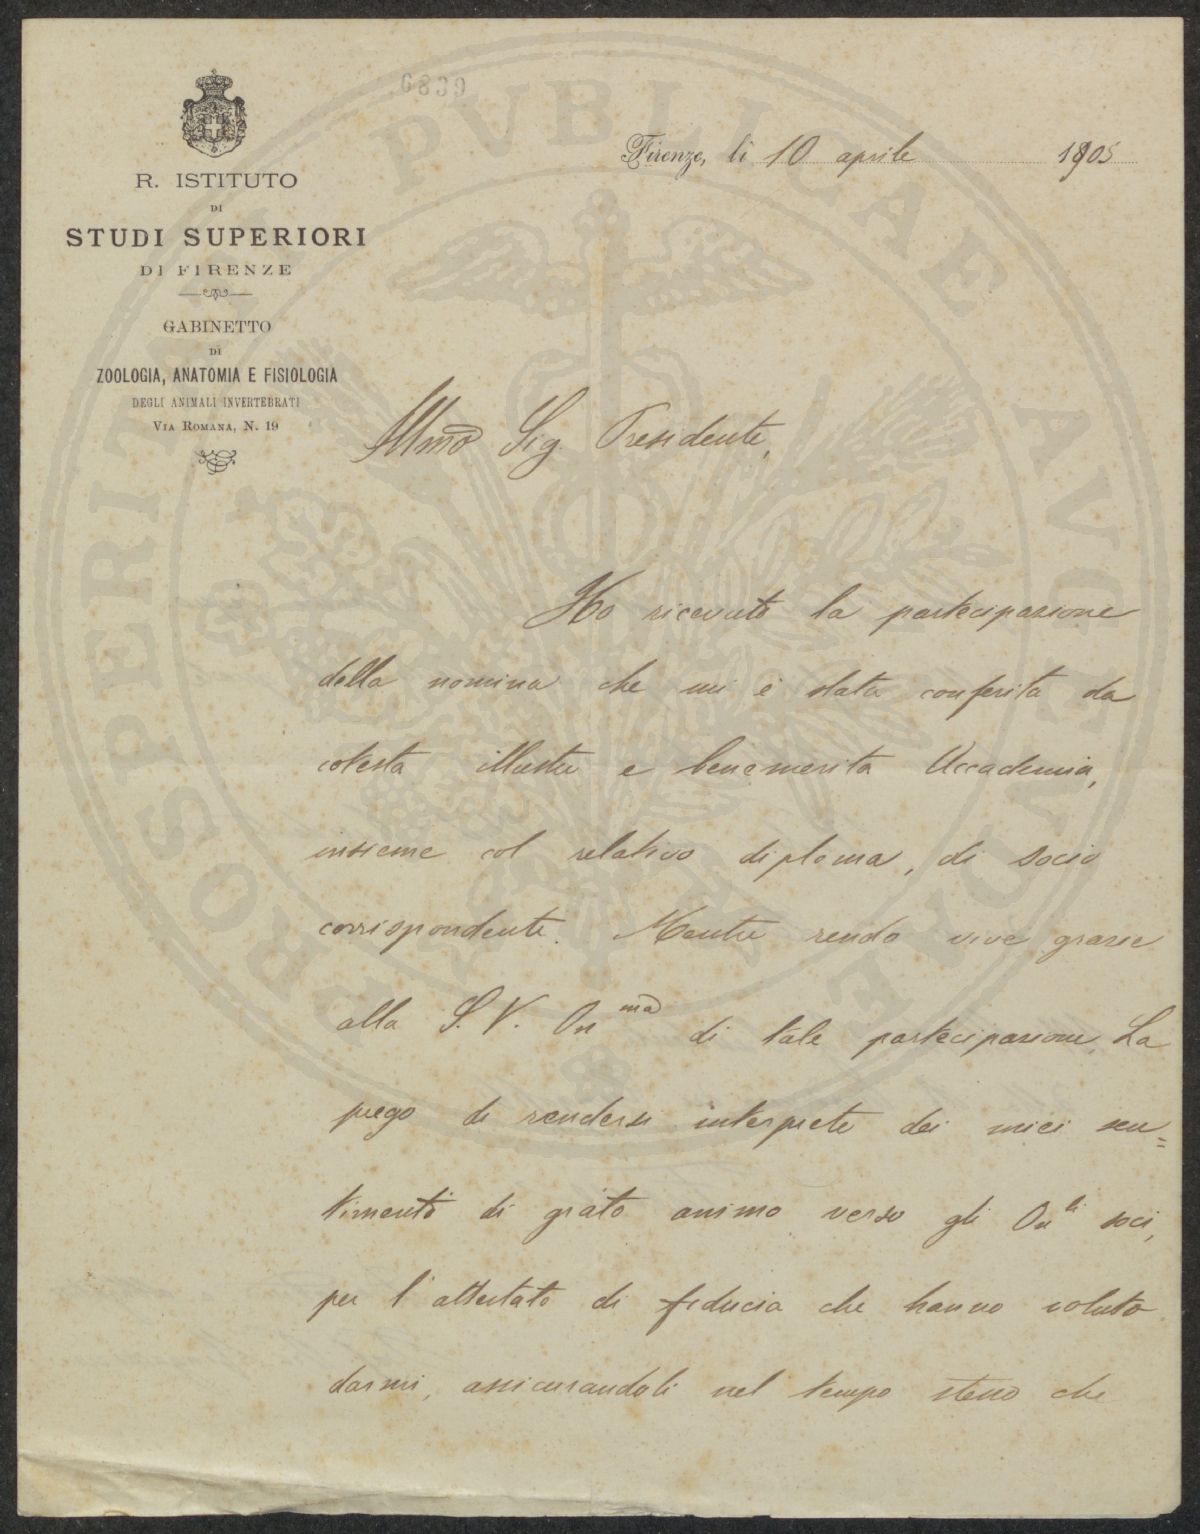 6839
R. ISTITUTO
DI
STUDI SUPERIORI
DI FIRENZE
GABINETTO
DI
ZOOLOGIA, ANATOMIA E FISIOLOGIA
DEGLI ANIMALI INVERTEBRATI
VIA ROMANA, N. 19
Firenze, li 10 aprile 1905
Illmo Sig. Presidente,
Ho ricevuto la partecipazione
della nomina che mi è stata conferita da
cotesta illustre e benemerita Accademia,
insieme col relativo diploma, di socio
corrispondente. Mentre rendo vive grazie
alla S. V. On ma di tale partecipazione, La
prego di rendersi interprete dei miei sen=
timenti di grato animo verso gli On li soci,
per l'attestato di fiducia che hanno voluto
darmi, assicurandoli nel tempo stesso che
PROSPERITATI PVBLICAE AVGENDAE